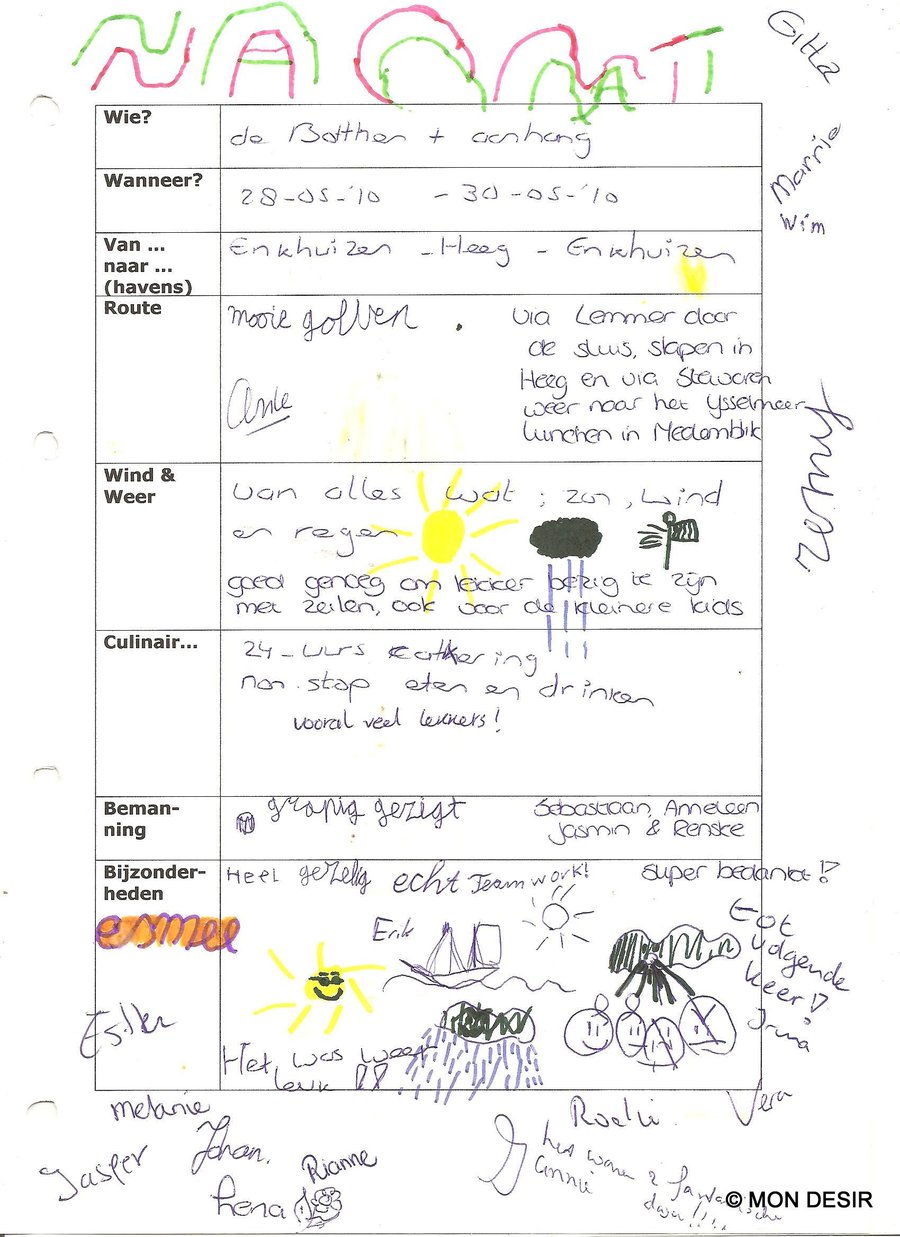 Gitta
Marrie
Wim
Wie?
de Botther + aanhang
Wanneer?
28-05-'10 - 30-05-'10
Van ...
naar ...
(havens)
Enkhuizen - Heeg - Enkhuizen
Route
mooie golven .
via Lemmer door
de sluis, slapen in
Heeg en via Stavoren
weer naar het Ysselmeer
lunchen in Medemblik
Wind &
Weer
van alles wat ; zon , wind
en regen
goed genoeg om lekker bezig te zijn
met zeilen, ook voor de kleinere kids
Culinair...
24-uurs catering
non stop eten en drinken
vooral veel lekkers!
Beman-
ning
grapig gezigt
Sebastiaan, Anneleen
Jasmin & Renske
Bijzonder-
heden
Heel gezelig echt Teamwork!
super bedankt!
tot
volgende
keer!
Irma
esmee
Erik
Esther
Het was weer
leuk !!
melanie
Jasper
Johan.
Rianne
Lena
Roelie
Vera
Annie
© MON DESIR